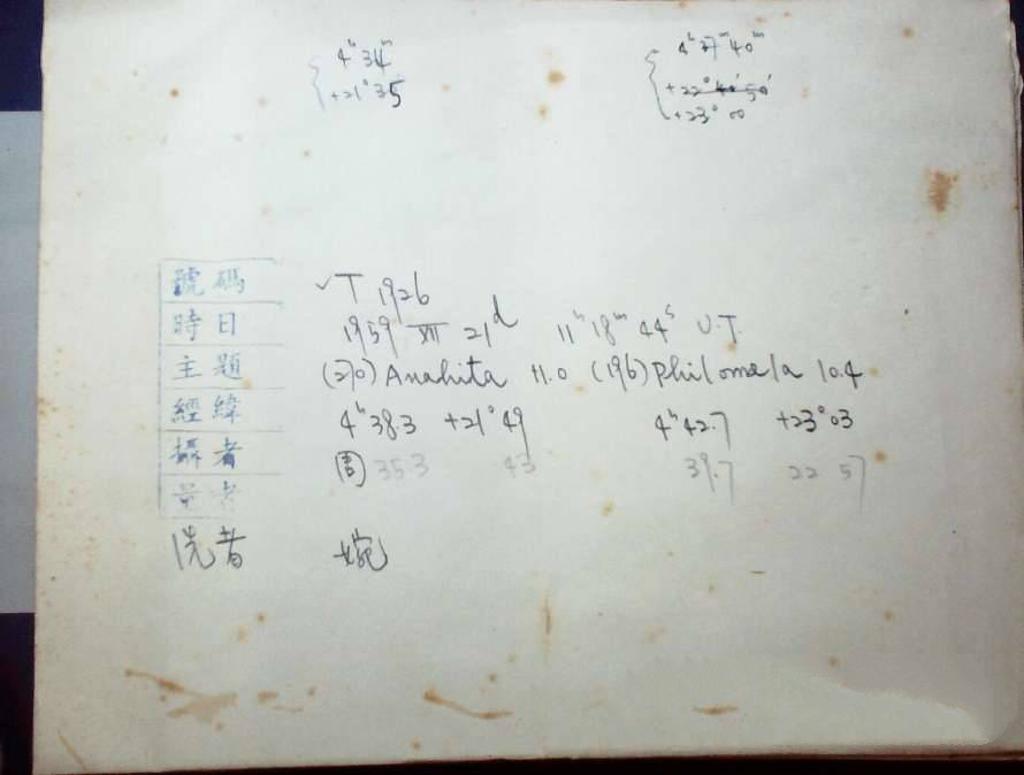 4ʰ 34ᵐ
+21° 35
4ʰ 37ᵐ 40ᵐ
+22° 50'
+23° 00
號碼 ✓T 1926
時日 1959 XII 21ᵈ 11ʰ 18ᵐ 44ˢ U.T.
主題 (270) Anahita 11.0 (196) Philomela 10.4
經緯 4ʰ 38.3 +21° 49 4ʰ 42.7 +23° 03
攝者 35.3 43 39.7 22 57
量者
洗者 婉